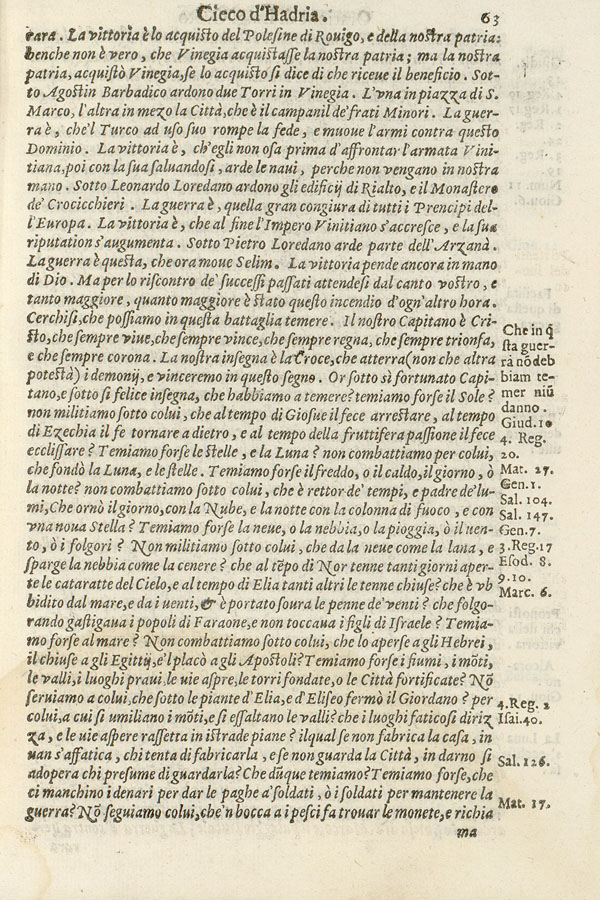 Cieco d'Hadria. 63
rara. La vittoria è lo acquisto del Polesine di Rouigo, e della nostra patria:
benche non è vero, che Vinegia acquistasse la nostra patria; ma la nostra
patria, acquistò Vinegia, se lo acquisto si dice di che riceue il beneficio. Sot-
to Agostin Barbadico ardono due Torri in Vinegia. L'vna in piazza di S.
Marco, l'altra in mezo la Città, che è il campanil de' frati Minori. La guer-
ra è, che'l Turco ad uso suo rompe la fede, e muoue l'armi contra questo
Dominio. La vittoria è, ch'egli non osa prima d'affrontar l'armata Vini-
tiana, poi con la sua saluandosi, arde le naui, perche non vengano in nostra
mano. Sotto Leonardo Loredano ardono gli edificij di Rialto, e il Monastero
de' Crocicchieri. La guerra è, quella gran congiura di tutti i Prencipi del-
l'Europa. La vittoria è, che al fine l'Impero Vinitiano s'accresce, e la sua
riputation s'augumenta. Sotto Pietro Loredano arde parte dell'Arzanà.
La guerra è questa, che ora moue Selim. La vittoria pende ancora in mano
di Dio. Ma per lo riscontro de' successi passati attendesi dal canto vostro, e
tanto maggiore, quanto maggiore è stato questo incendio d'ogn'altro hora.
Cerchisi, che possiamo in questa battaglia temere. Il nostro Capitano è Cri-
sto, che sempre viue, che sempre vince, che sempre regna, che sempre trionfa,
e che sempre corona. La nostra insegna è la Croce, che atterra (non che altra
potestà) i demonij, e vinceremo in questo segno. Or sotto sì fortunato Capi-
tano, e sotto sì felice insegna, che habbiamo a temere? temiamo forse il Sole?
non militiamo sotto colui, che al tempo di Giosue il fece arrestare, al tempo
di Ezechia il fe tornare a dietro, e al tempo della fruttifera passione il fece
ecclissare? Temiamo forse le stelle, e la Luna? non combattiamo per colui,
che fondò la Luna, e le stelle. Temiamo forse il freddo, o il caldo, il giorno, ò
la notte? non combattiamo sotto colui, che è rettor de' tempi, e padre de' lu-
mi, Che ornò il giorno, con la Nube, e la notte con la colonna di fuoco, e con
vna noua Stella? Temiamo forse la neue, o la nebbia, o la pioggia, ò il uen-
to, ò i folgori? Non militiamo sotto colui, che da la neue come la lana, e
sparge la nebbia come la cenere? che al tẽpo di Nor tenne tanti giorni aper-
te le cataratte del Cielo, e al tempo di Elia tanti altri le tenne chiuse? che è vb
bidito dal mare, e da i uenti, & è portato soura le penne de' venti? che folgo-
rando gastigaua i popoli di Faraone, e non toccaua i figli di Israele? Temia-
mo forse al mare? Non combattiamo sotto colui, che lo aperse a gli Hebrei,
il chiuse a gli Egittij, e'l placò a gli Apostoli? Temiamo forse i fiumi, i mõti,
le valli, i luoghi praui, le uie aspre, le torri fondate, o le Città fortificate? Nõ
seruiamo a colui, che sotto le piante d'Elia, e d'Eliseo fermò il Giordano? per
colui, a cui si umiliano i mõti, e si essaltano le valli? che i luoghi faticosi diriz
za, e le uie aspere rassetta in istrade piane? il qual se non fabrica la casa, in
uan s'affatica, chi tenta di fabricarla, e se non guarda la Città, in darno si
adopera chi presume di guardarla? Che dũque temiamo? Temiamo forse, che
ci manchino i denari per dar le paghe a' soldati, ò i soldati per mantenere la
guerra? Nõ seguiamo colui, che'n bocca a i pesci fa trouar le monete, e richia
ma
Che in q̃
sta guer-
ra nõ deb
biam te-
mer niũ
danno.
Giud. 10
4. Reg.
20.
Mat. 27.
Gen. 1.
Sal. 104.
Sal. 147.
Gen. 7.
3. Reg. 17
Esod. 8.
9. 10.
Marc. 6.
4. Reg. 2
Isai. 40.
Sal. 126.
Mat. 17.